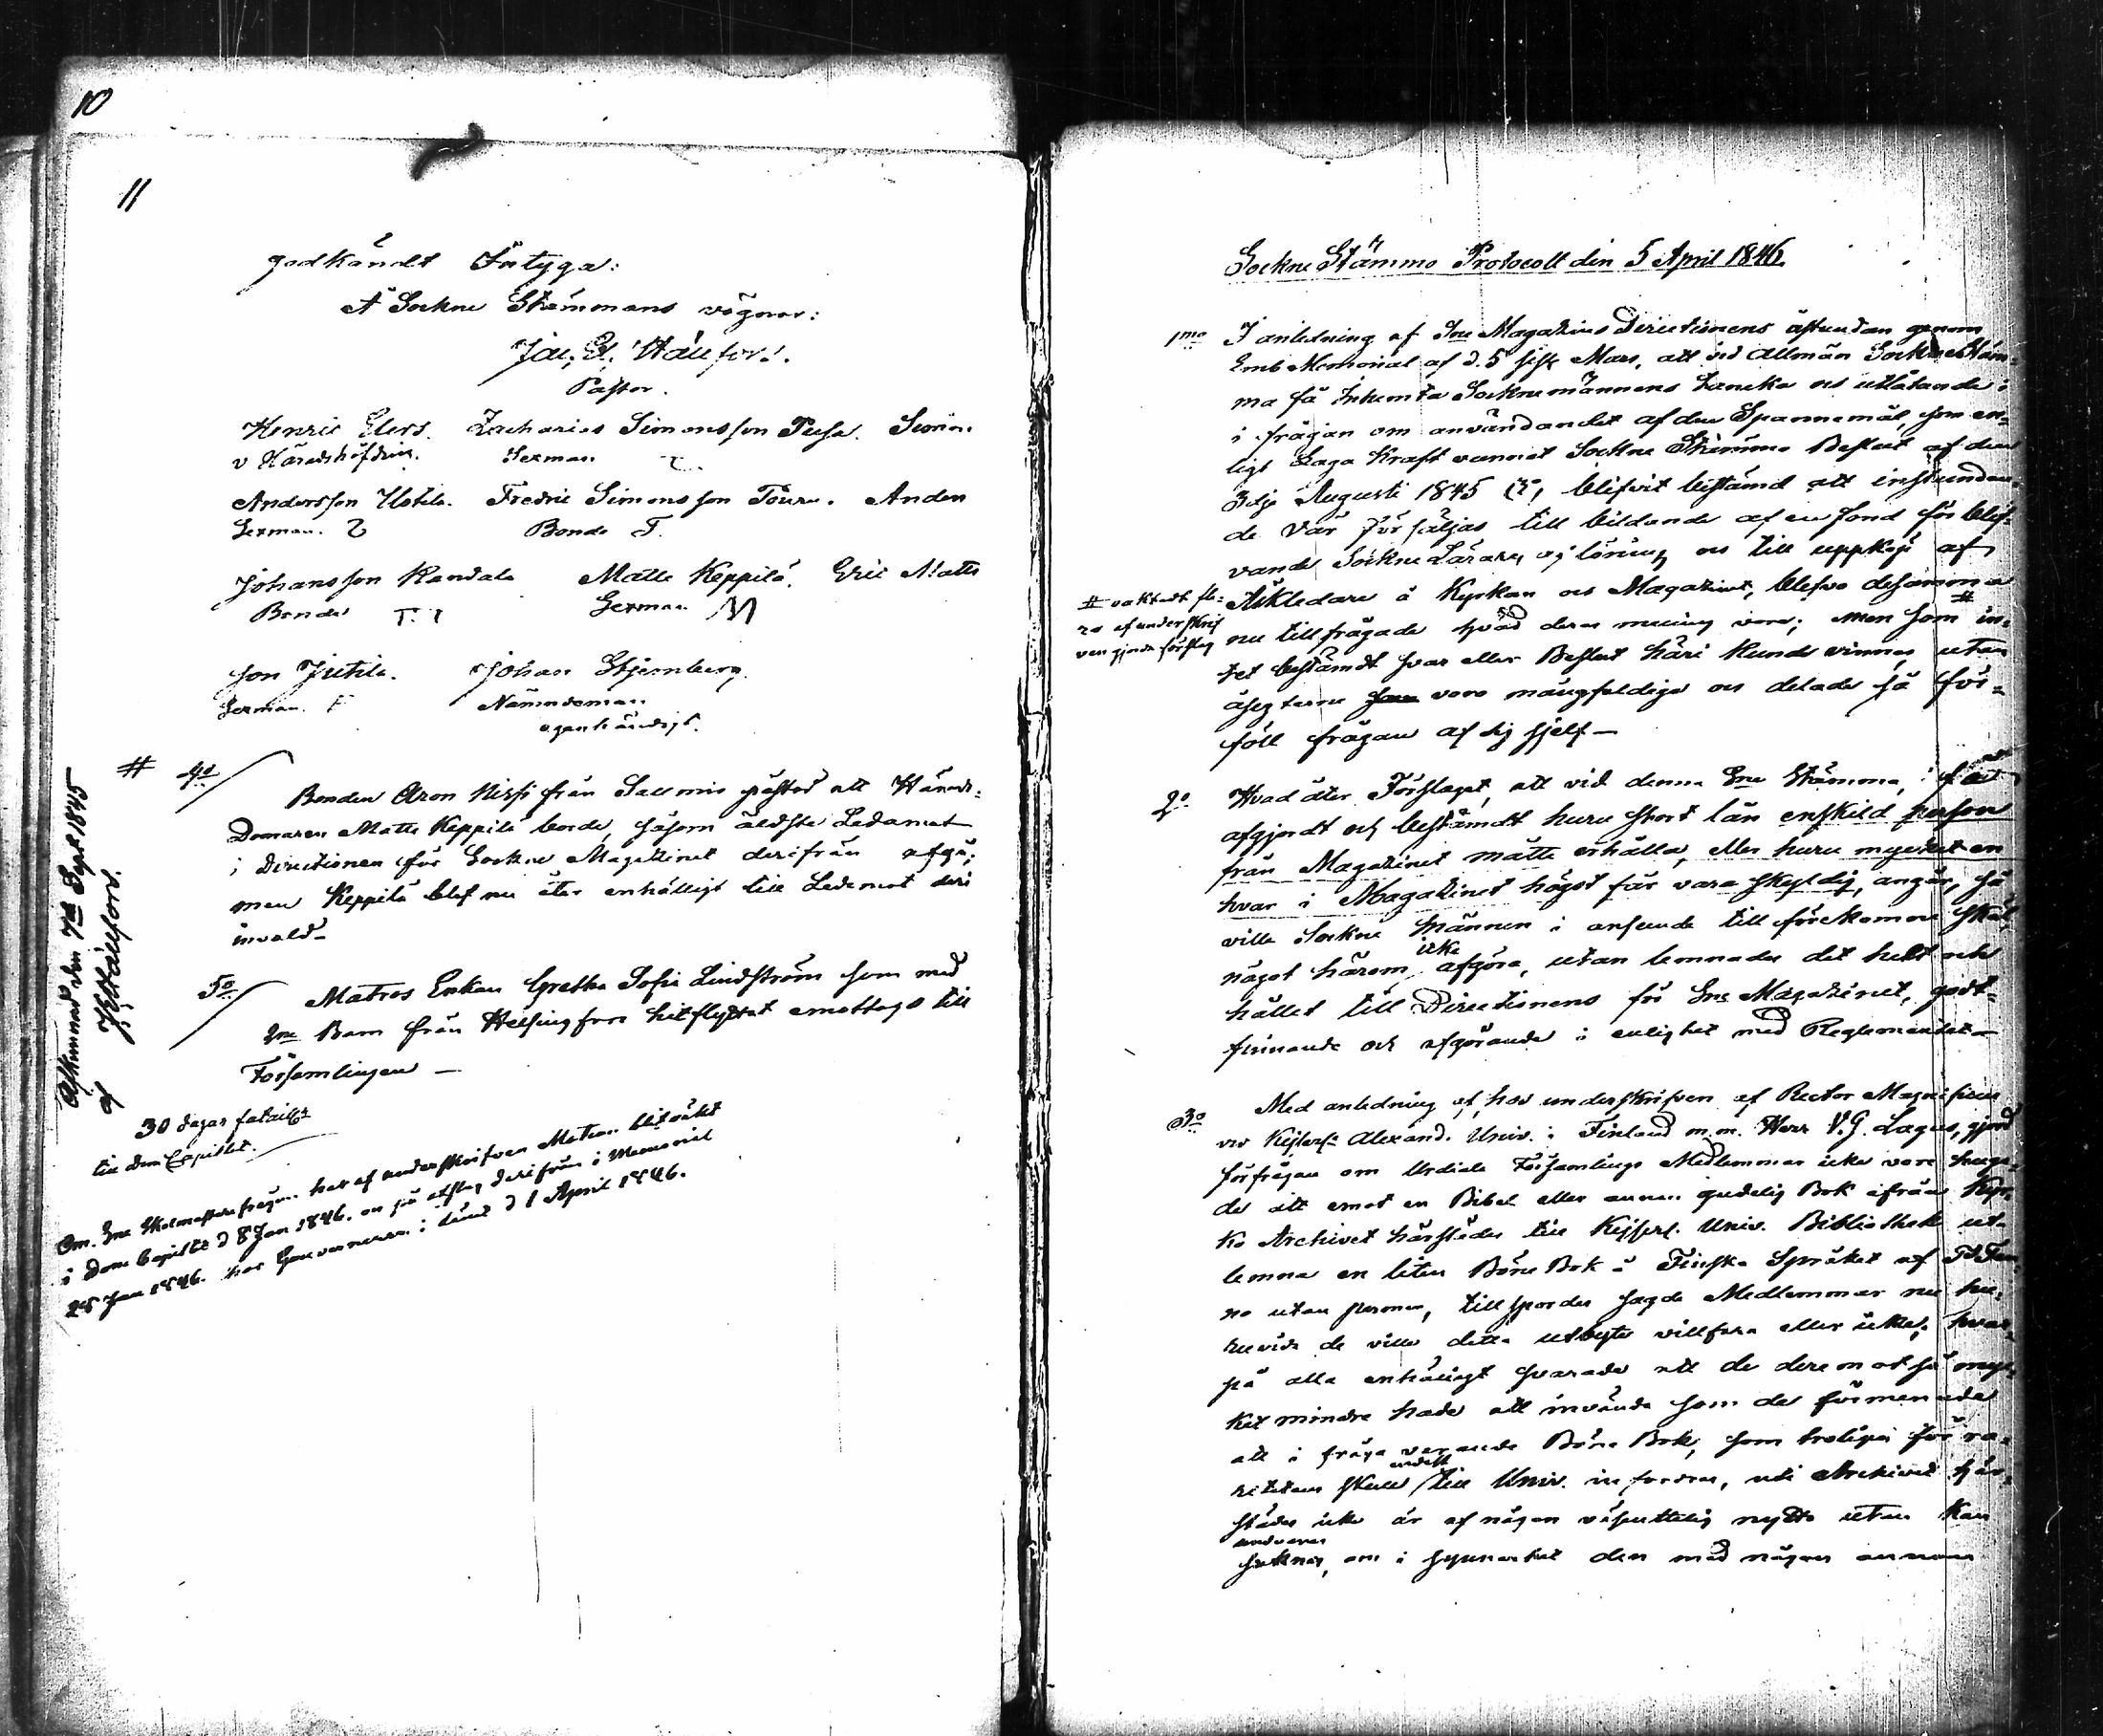 10
11
godkändt Intyga:
Å Sockne Stämmans vägnar:
Pastor.
Henric Elers. Zacharias Simonsson Simon
v Häradshöfding. Sexman
Andersson Fredric Simonsson Anders
Sexman. Bonde
Johansson Kandala Matts Keppilä. Eric Matts
Bonde Sexman
son Jutila. Johan Stjernberg.
Sexman. Nämndeman
egenhändigt.
# 4o
Bonden Aron från påstod att Härads-
Domaren Matts Keppilä borde, såsom äldste Ledamot
i Directionen för Sockne Magazinet derifrån afgå;
men Keppilä blef nu åter enhälligt till Ledamot deri
invald_
5o
Matros Enkan Gretha Sofia Lindström som med
Barn från Helsingfors hitflyttat emottogs till
Församlingen —
Afkunnad den 7de Sept 1845
af
30 dagar
till Dom Capitlet.
Om Sne Skolmästare frågan har af underskrifven
i Dom Capitlet d 8 Jan 1846. derifrån i Memorial
28 Jan 1846. har Gouverneuren i d 1 April 1846.
Sockne Stämmo Protocoll den 5 April 1846.
1mo I anledning af Sne Magazins Directionens åstundan genom
Memorial af d. 5 sistl Mars, att vid allmän Sockne Stäm-
ma få inhemta Socknemännens tancka och utlåtande i
i frågan om användandet af den Spannemål, som en-
ligt Laga Kraft vunnet Sockne Stämmo Beslut af den
3dje Augusti 1845 blifvit bestämd att instundan-
de Vår försäljas till bildande af en fond för blif-
vande Sockne Lärares aflöning och till uppköp af
Åskledare å Kyrkan och Magazinet, blefvo desamma
nu tillfrågade hvad deras mening vore; men som # in-
tet bestämdt svar eller Beslut häri kunde vinnas utan
åsigterne voro mångfaldiga och delade så för-
föll frågan af sig sjelf —
# oaktadt fle-
ra af underskrif
ven gjorda förslag
2o Hvad åter Förslaget, att vid denna Sne Stämma, få
afgjordt och bestämdt huru stort lån enskild person
från Magazinet måtte erhålla, eller huru mycket en
hvar i Magazinet högst får vara skyldig, angår, så
ville Sockne Männen i anseende till förekomne skäl
något härom icke afgöra, utan lemnades det helt och
hållet till Directionens för Sne Magazinet, godt-
finnande och afgörande i enlighet med Reglementet —
3o Med anledning af hos underskrifven af Rector Magnificus
vid Kejserl: Alexand. Univ. i Finland m.m. Herr Lagus, gjord
förfrågan om Urdiala Församlings Medlemmar icke vore huga-
de att emot en Bibel eller annan gudelig Bok ifrån Kyr-
ko Archivet härstädes till Kejserl. Univ. Bibliothek ut-
lemna en liten Böne Bok å Finska Språket af
utan permar, tillspordes sagde Medlemmar nu hu-
ruvida de ville detta utbyte villfara eller icke; hvar-
på alla enhälligt svarade att de deremot så myc-
ket mindre hade att invända som de förmenade
att i fråga varande Böne Bok, som troligen för ra-
ritetens skull endast till Univ. infordras, uti Archivet här-
städes icke är af någon väsentlig nytta utan kan
undvaras
saknas, om i synnerhet den med någon annan